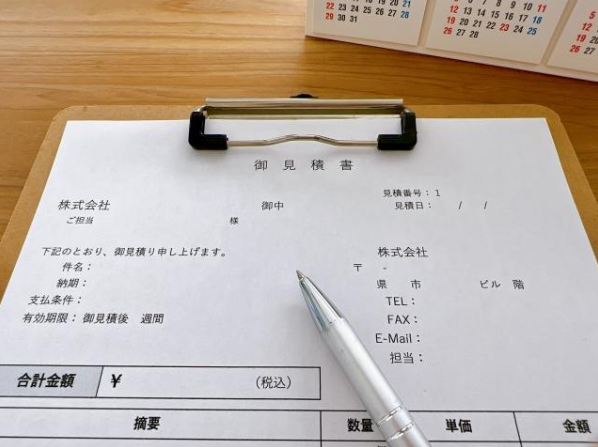 22 23 24 25 26 27 28
29 30 31
12 13 14 15 16 17 18
19 20 21 22 23 24 25
26 27 28
御見積書
見積番号：1
見積日：　/　/
株式会社　御中
ご担当　様
下記のとおり、御見積り申し上げます。
件名：
納期：
支払条件：
有効期限：御見積後　週間
株式会社
〒　-
県　市　ビル　階
TEL：
FAX：
E-Mail：
担当：
合計金額　￥　（税込）
摘要　数量　単価　金額